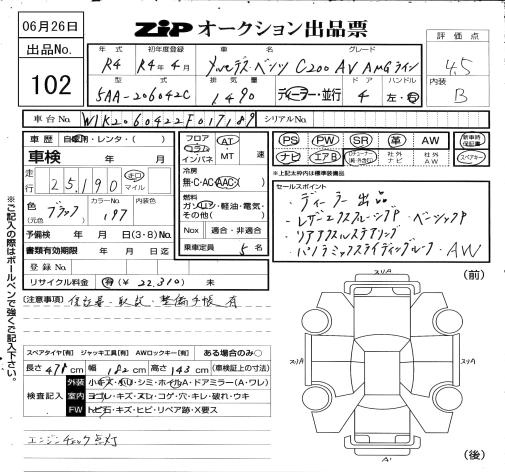 06月26日
ZIP オークション出品票
出品No.
102
評価点
4.5
内装
B
年式 初年度登録 車名 グレード
R4 R4年4月 メルセデス・ベンツ C200 AV AMGライン
型式 排気量 ドア ハンドル
5AA-206042C 1490 ディーラー・並行 4 左・右
車台No. W1K2060422F017189 シリアルNo.
車歴 自家用・レンタ・( )
車検 年 月
走行 25,190 キロ マイル
色(元色) ブラック カラーNo. 197 内装色
予備検 年 月 日(3・8)No.
書類有効期限 年 月 日
登録No.
リサイクル料金 有(¥ 22,310) 未
フロア コラム インパネ AT MT 速
冷房 無・C・AC・AAC・( )
燃料 ガソリン・軽油・電気・その他( )
Nox 適合・非適合
乗車定員 5名
PS PW SR 革 AW 新車時保証書
ナビ エアB 社外ナビ 社外AW スペアキー
※上記太枠内は標準装備品
セールスポイント
・ディーラー出品
・レザーエクスクルーシブP ・ベーシックP
・リアアクスルステアリング
・パノラミックスライディングルーフ ・AW
(注意事項) 保証書・取説・整備手帳 有
スペアタイヤ[有] ジャッキ工具[有] AWロックキー[有] ある場合のみ○
長さ 478cm 幅 182cm 高さ 143cm (車検証上の寸法)
検査記入
外装 小キズ・凹リ・シミ・ホイルA・ドアミラー(A・ワレ)
室内 ヨゴレ・キズ・スレ・コゲ・穴・キレ・破れ・ウキ
FW トビ石・キズ・ヒビ・リペア跡・X要ス
エンジンチェック点灯
※ご記入の際はボールペンで強くご記入下さい。
(前)
スリA
スリA
スリA
A'
(後)